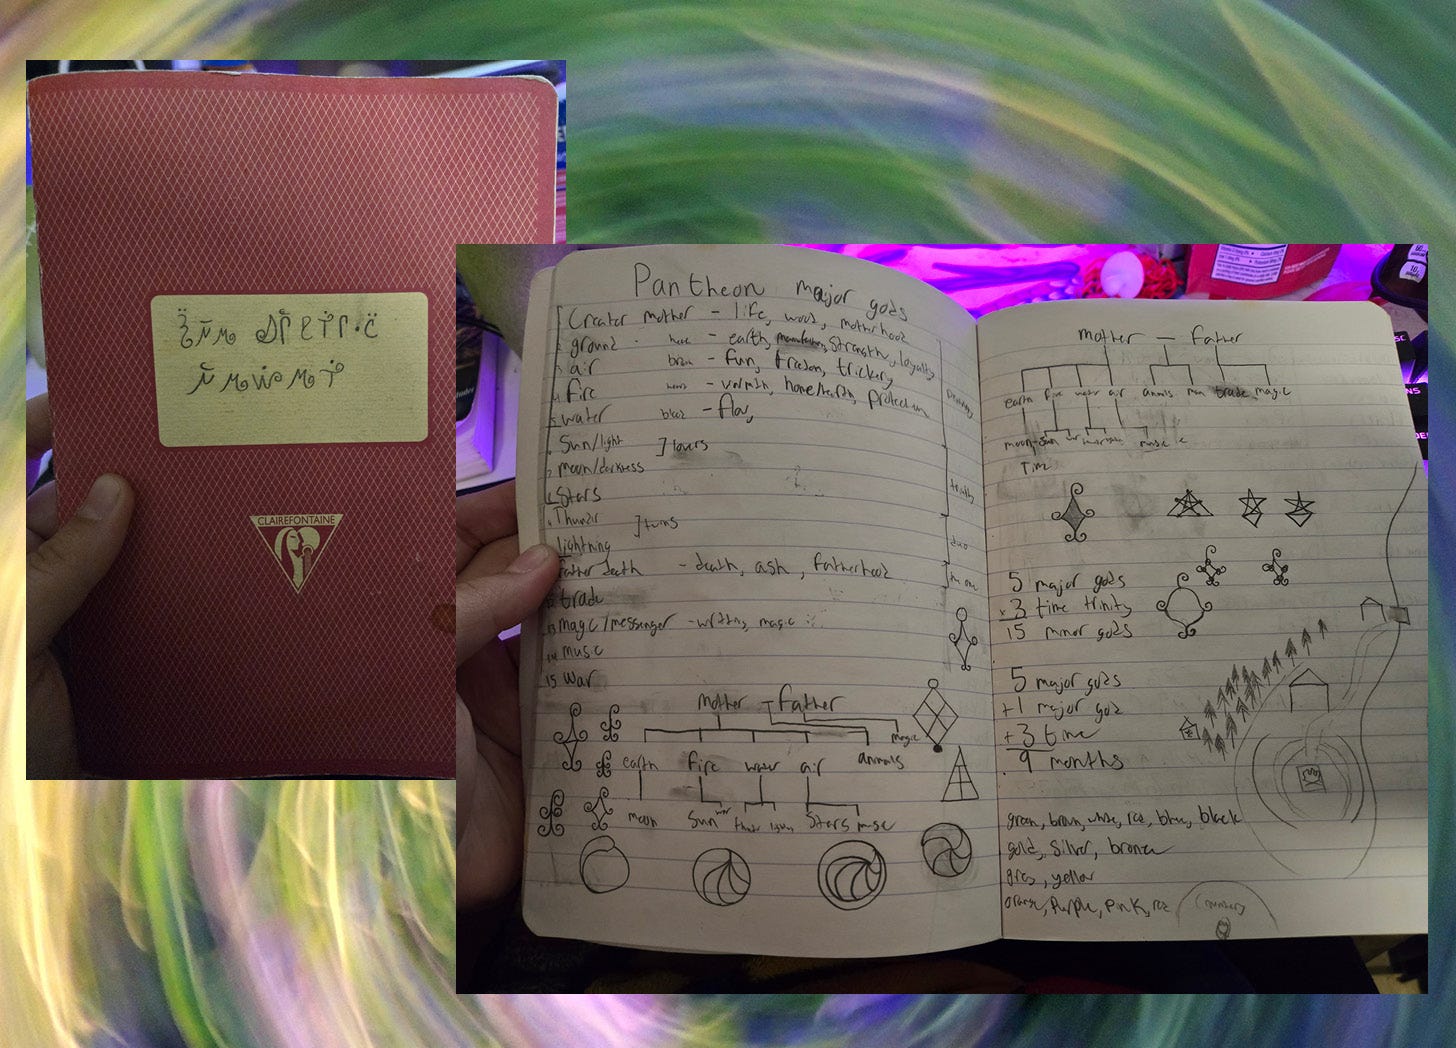 CLAIREFONTAINE
Pantheon major gods
Creator mother - life, wood, motherhood
ground - earth, strength, loyalty
air - fun, freedom, trickery
fire - warmth, home/hearth, protection
water blood - flow,
Sun/light ] lovers
moon/darkness
Stars
Thunder ] twins
lightning
father death - death, ash, fatherhood
trade
magic/messenger - writing, magic
music
15 war
trinity
duo
mother - father
magic
earth fire water air animals
moon Sun war Stars music
mother - father
earth fire water air man trade magic
moon Sun music
Time
5 major gods
x 3 time trinity
15 minor gods
5 major gods
+1 major god
+3 time
9 months
green, brown, white, red, blue, black
gold, silver, bronze
grey, yellow
orange, purple, pink, red